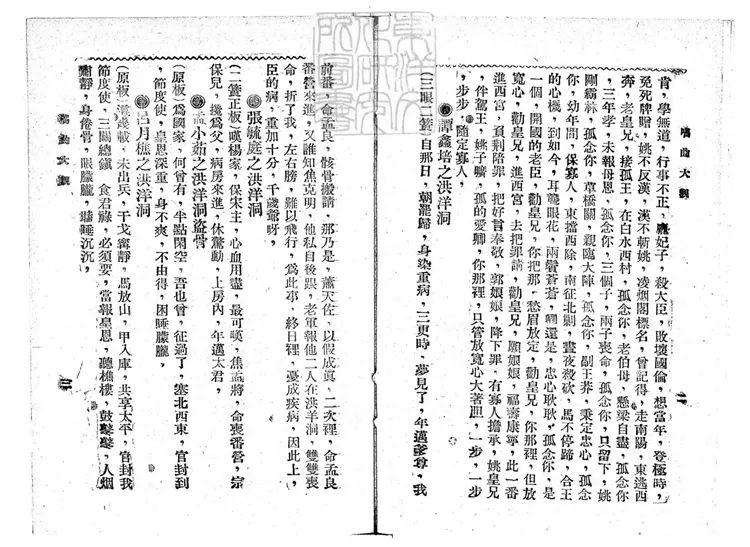 唱曲大觀
肯，學無道，行事不正，寵妃子，殺大臣，敗壞國倫，想當年，登極時，
免死牌贈，姚不反漢，漢不斬姚，凌烟閣標名，曾記得，走南陽，東逃西
奔，老皇兄，接孤王，在白水西村，孤念你，老伯母，懸梁自盡，孤念你
，三年孝，未報母恩，孤念你，三個子，兩子喪命，孤念你，只留下，姚
剛霸林，孤念你，草橋關，親臨大陣，孤念你，剮王莽，秉定忠心，孤念
你，幼年間，保寡人，東擋西除，南征北剿，晝夜殺砍，馬不停蹄，合王
的心機，到如今，耳聾眼花，兩鬢蒼蒼，還是，忠心耿耿，孤念你，是
一個，開國的老臣，勸皇兄，你把那，愁眉放定，勸皇兄，你那裡，但放
寬心，勸皇兄，進西宮，去把罪請，勸皇兄，願娘娘，福壽康寧，此一番
進西宮，負荊陪罪，把好言奉敬，郭娘娘，降下罪，有寡人擔承，姚皇兄
，伴駕王，姚子驕，孤的愛卿，你那裡，只管放寬心大著胆，一步，一步
，步步，隨定寡人，
●譚鑫培之洪洋洞
（三眼二簧）自那日，朝罷歸，身染重病，三更時，夢見了，年邁爹尊，我
前番，命孟良，骸骨搬請，那乃是，蕭天佐，以假成眞，二次裡，命孟良
番營來進，又誰知焦克明，他私自後跟，老軍報他二人在洪洋洞，雙雙喪
命，折了我，左右膀，難以飛行，爲此事，終日裡，憂成疾病，因此上，
臣的病，重加十分，千歲爺呀，
●張毓庭之洪洋洞
（二簧正板）嘆楊家，保宋主，心血用盡，最可嘆，焦孟將，命喪番營，宗
保兒，攙爲父，病房來進，休驚動，上房內，年邁太君，
●孟小茹之洪洋洞盜骨
（原板）爲國家，何曾有，半點閑空，吾也曾，征過了，塞北西東，官封到
，節度使，皇恩深重，身不爽，不由得，困睡朦朧，
●呂月樵之洪洋洞
（原板）數載，未出兵，干戈寗靜，馬放山，甲入庫，共享太平，官封我
節度使，三關總鎮，食君祿，必須要，當報皇恩，聽樵樓，鼓鼕鼕，人烟
靜，身倦骨，眼朦朧，睡沉沉，
唱曲大觀